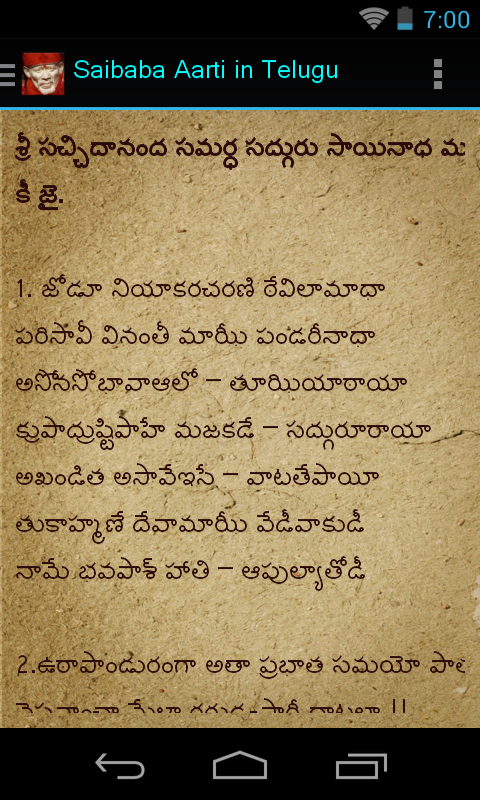 7:00
Saibaba Aarti in Telugu
శ్రీ సచ్చిదానంద సమర్ధ సద్గురు సాయినాధ
కీ జై.
1. జోడూ నియాకరచరణి ఠేవిలామాదా
పరిసావీ వినంతీ మాఝీ పండరీనాదా
అసోనసోభావాఆలో – తూఝియాఠాయా
క్రుపాద్రుష్టిపాహే మజకడే – సద్గురూరాయా
అఖండిత అసావేఇసే – వాటతేపాయీ
తుకాహ్మణే దేవామాఝీ వేడీవాకుడీ
నామే భవపాశ్ హాతి – ఆపుల్యాతోడీ
2.ఉఠాపాండురంగా అతా ప్రభాత సమయో